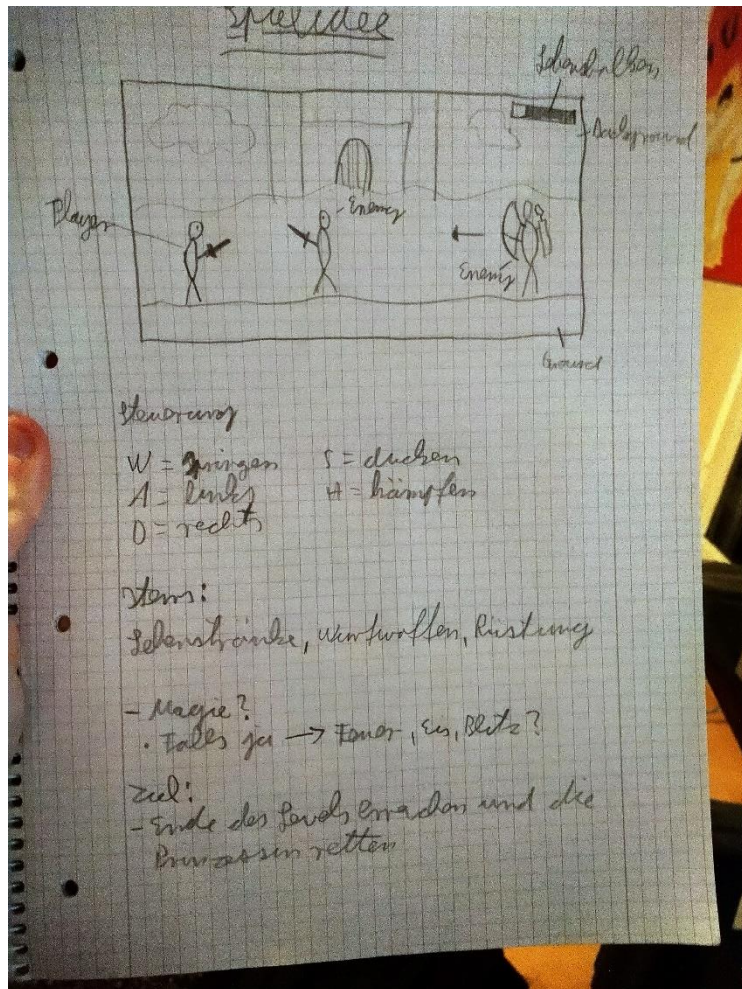 Spielidee
Lebensbalken
Background
Player
Enemy
Enemy
Ground
Steuerung
W = springen S = ducken
A = links H = kämpfen
D = rechts
Items:
Lebenstränke, Wurfwaffen, Rüstung
- Magie?
· Falls ja → Feuer, Eis, Blitz?
Ziel:
- Ende des Levels erreichen und die
Prinzessin retten